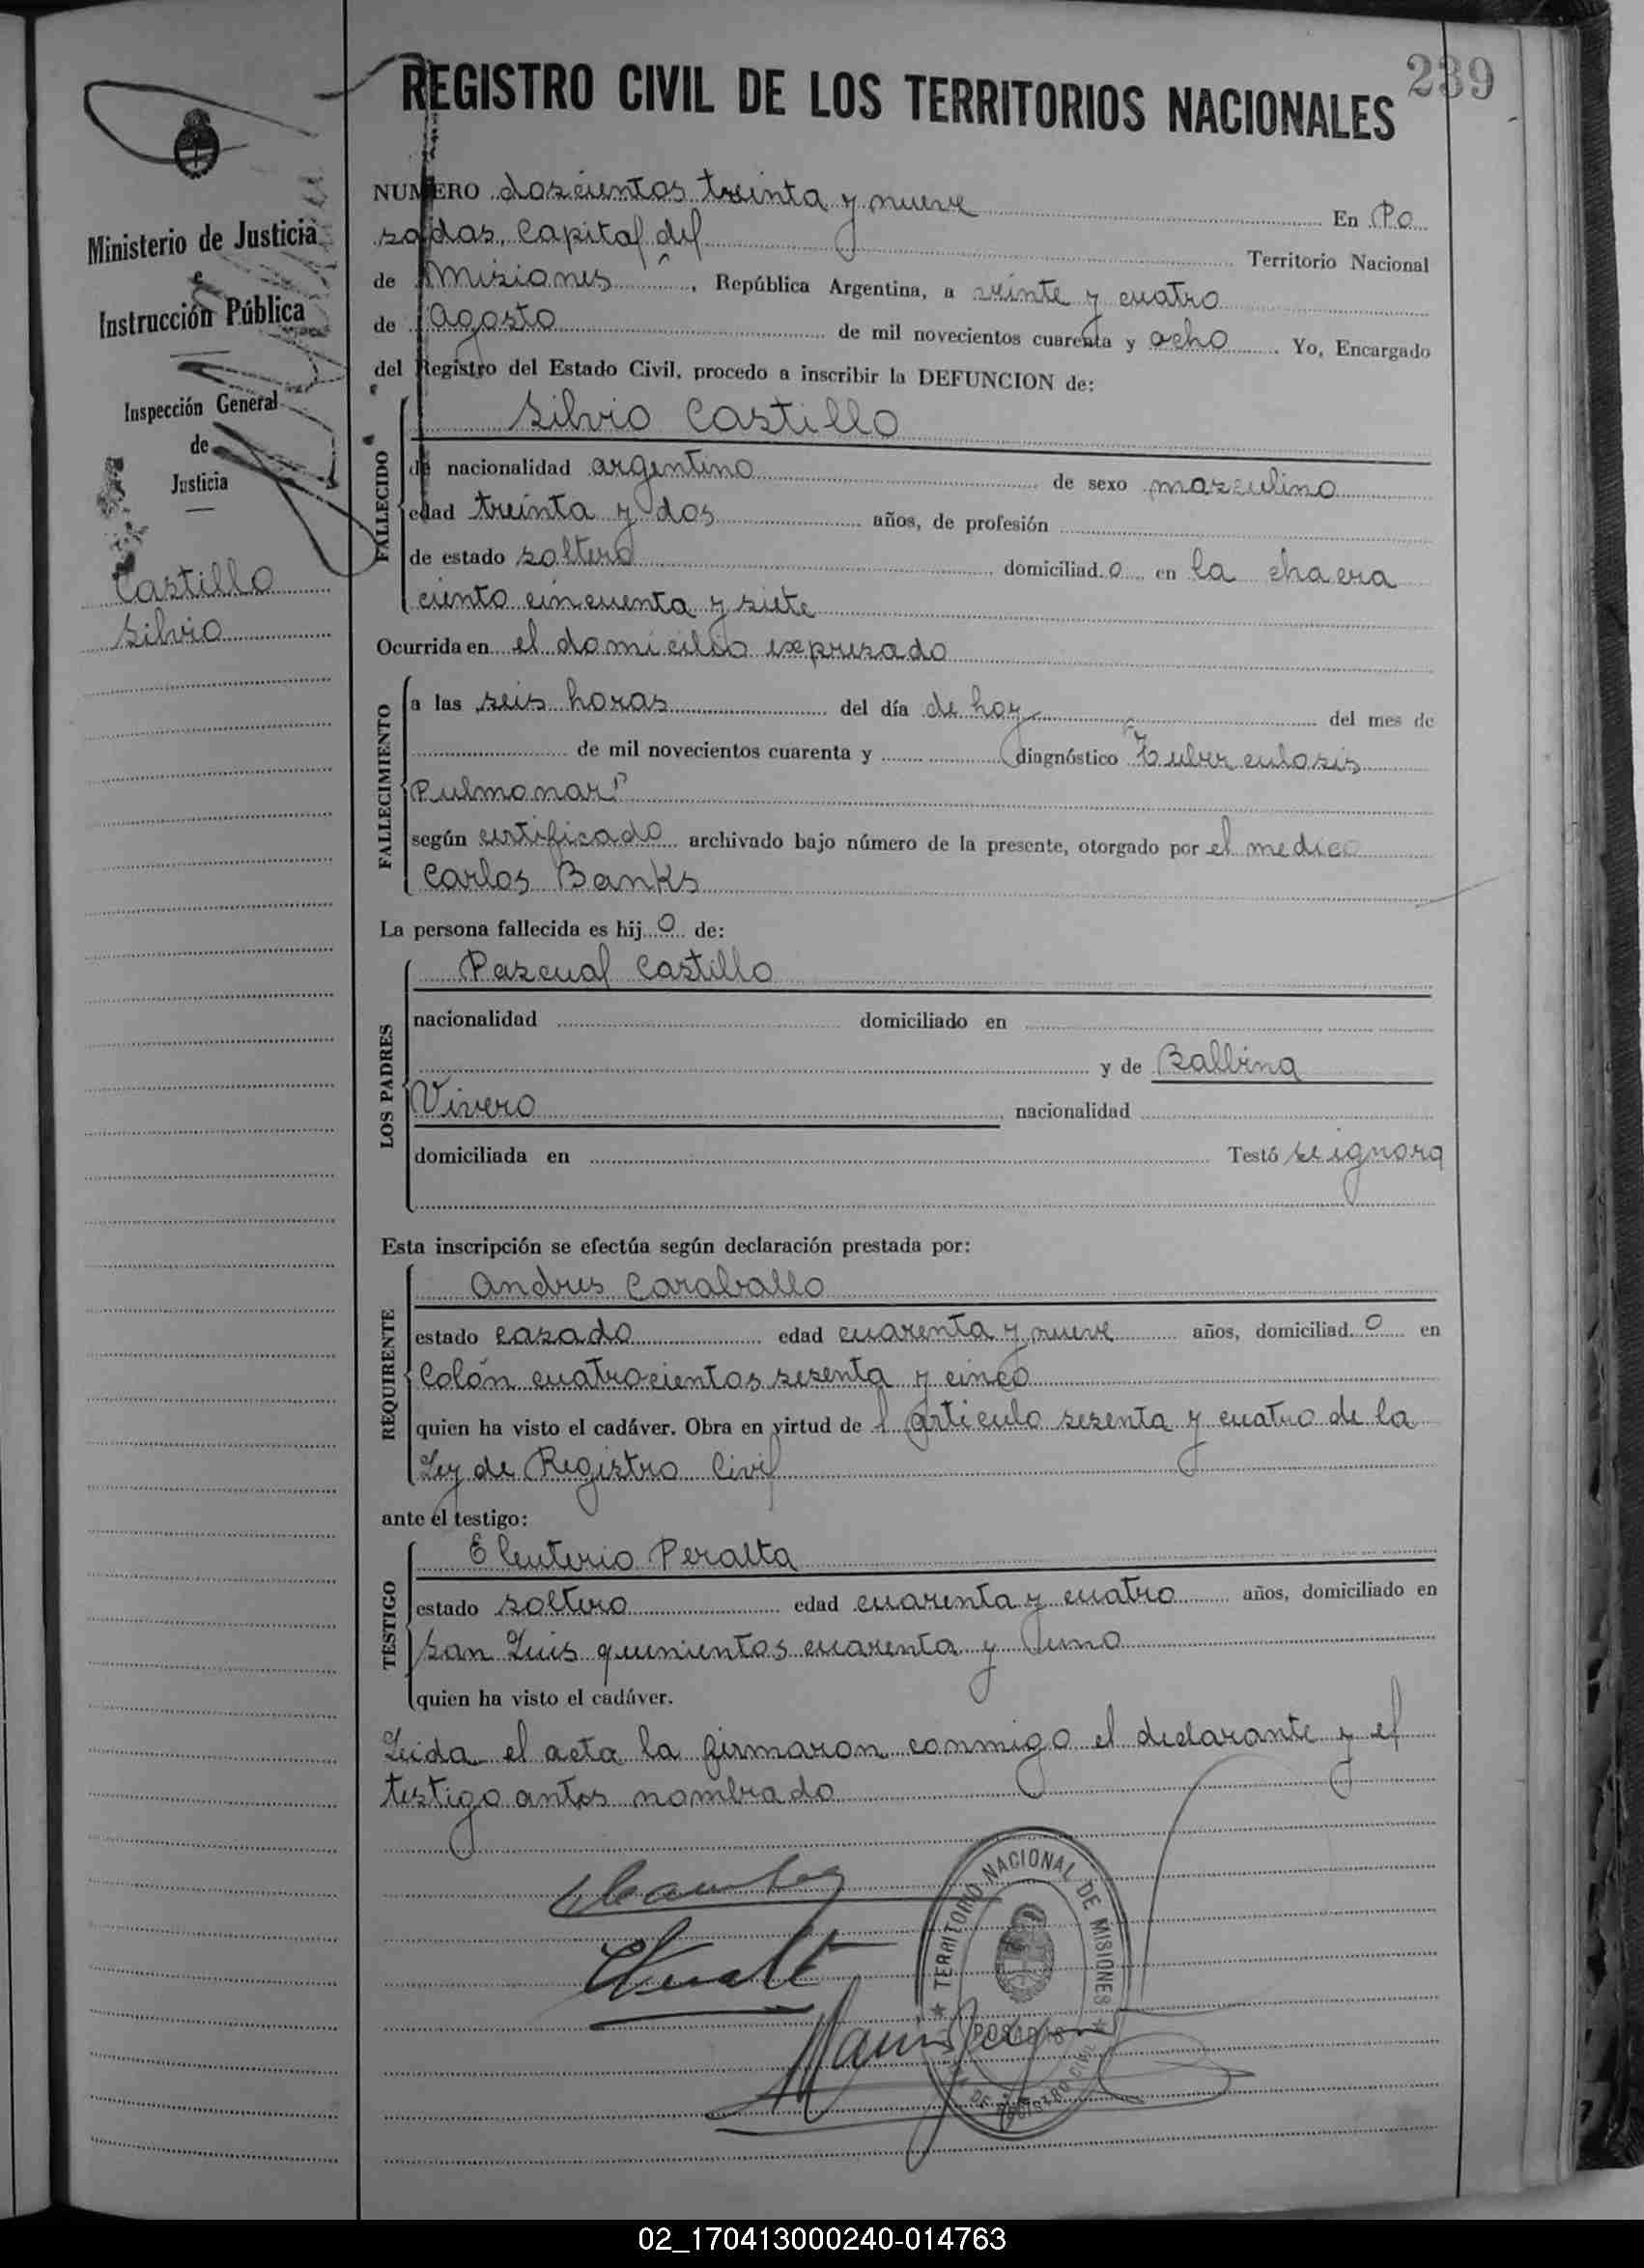 239
REGISTRO CIVIL DE LOS TERRITORIOS NACIONALES
Ministerio de Justicia
e
Instrucción Pública
Inspección General
de
Justicia
Castillo
Silvio
NUMERO doscientos treinta y nueve En Po
sadas, Capital del Territorio Nacional
de Misiones, República Argentina, a veinte y cuatro
de Agosto de mil novecientos cuarenta y ocho Yo, Encargado
del Registro del Estado Civil, procedo a inscribir la DEFUNCION de:
FALLECIDO
Silvio Castillo
de nacionalidad argentino de sexo masculino
edad treinta y dos años, de profesión
de estado soltero domiciliad o en la chacra
ciento cincuenta y siete
Ocurrida en el domicilio expresado
FALLECIMIENTO
a las seis horas del día de hoy del mes de
de mil novecientos cuarenta y diagnóstico "Tuberculosis
Pulmonar"
según certificado archivado bajo número de la presente, otorgado por el medico
Carlos Banks
La persona fallecida es hij o de:
LOS PADRES
Pascual Castillo
nacionalidad domiciliado en
y de Balbina
Vivero nacionalidad
domiciliada en Testó se ignora
Esta inscripción se efectúa según declaración prestada por:
REQUIRENTE
Andres Caraballo
estado casado edad cuarenta y nueve años, domiciliad o en
Colón cuatrocientos sesenta y cinco
quien ha visto el cadáver. Obra en virtud de l articulo sesenta y cuatro de la
Ley de Registro Civil
ante el testigo:
TESTIGO
Eleuterio Peralta
estado soltero edad cuarenta y cuatro años, domiciliado en
San Luis quinientos cuarenta y uno
quien ha visto el cadáver.
Leida el acta la firmaron conmigo el declarante y el
testigo antes nombrado
TERRITORIO NACIONAL DE MISIONES
POSADAS
REGISTRO CIVIL
02_170413000240-014763